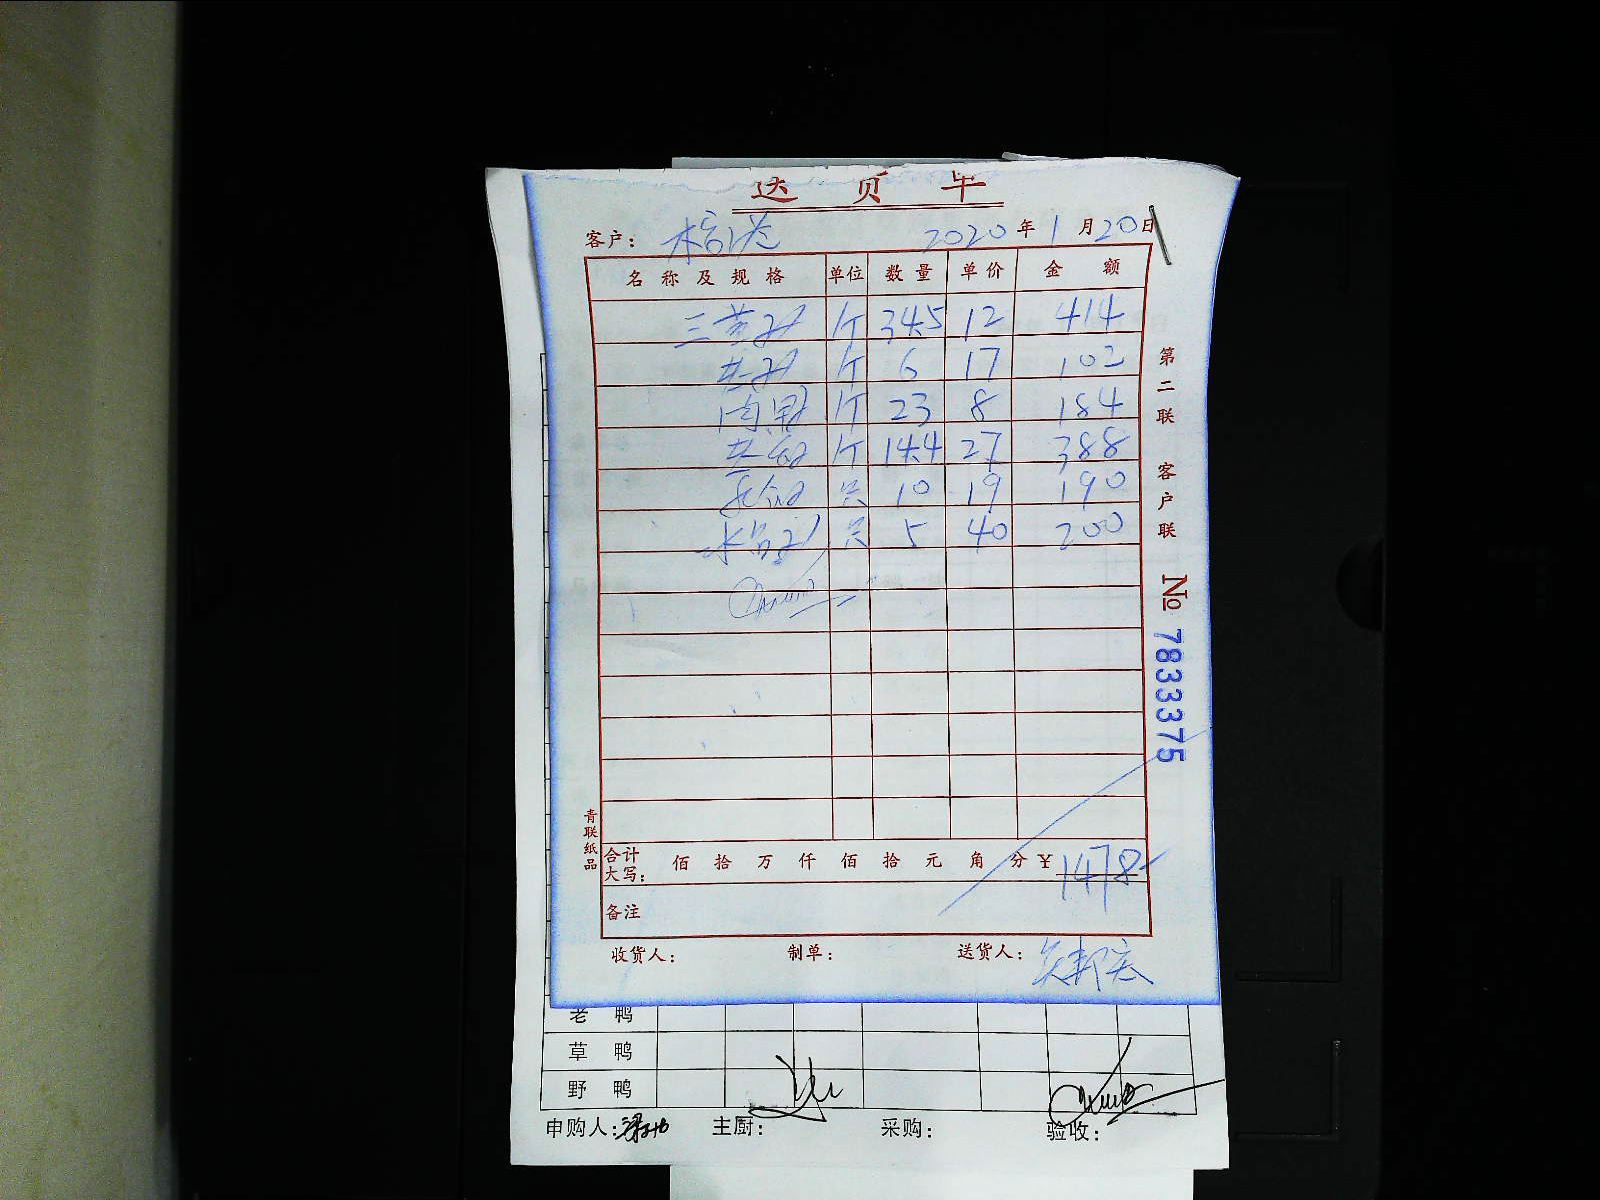 送货单
客户： 2020年1月20日
名称及规格 单位 数量 单价 金额
三黄 个 34.5 12 414
个 6 17 102
个 23 8 184
个 14.4 27 388
只 10 19 190
只 5 40 200
第二联 客户联
№ 7833375
青联纸品
合计大写： 佰 拾 万 仟 佰 拾 元 角 分 ¥1478
备注
收货人： 制单： 送货人：
老鸭
草鸭
野鸭
申购人： 主厨： 采购： 验收：